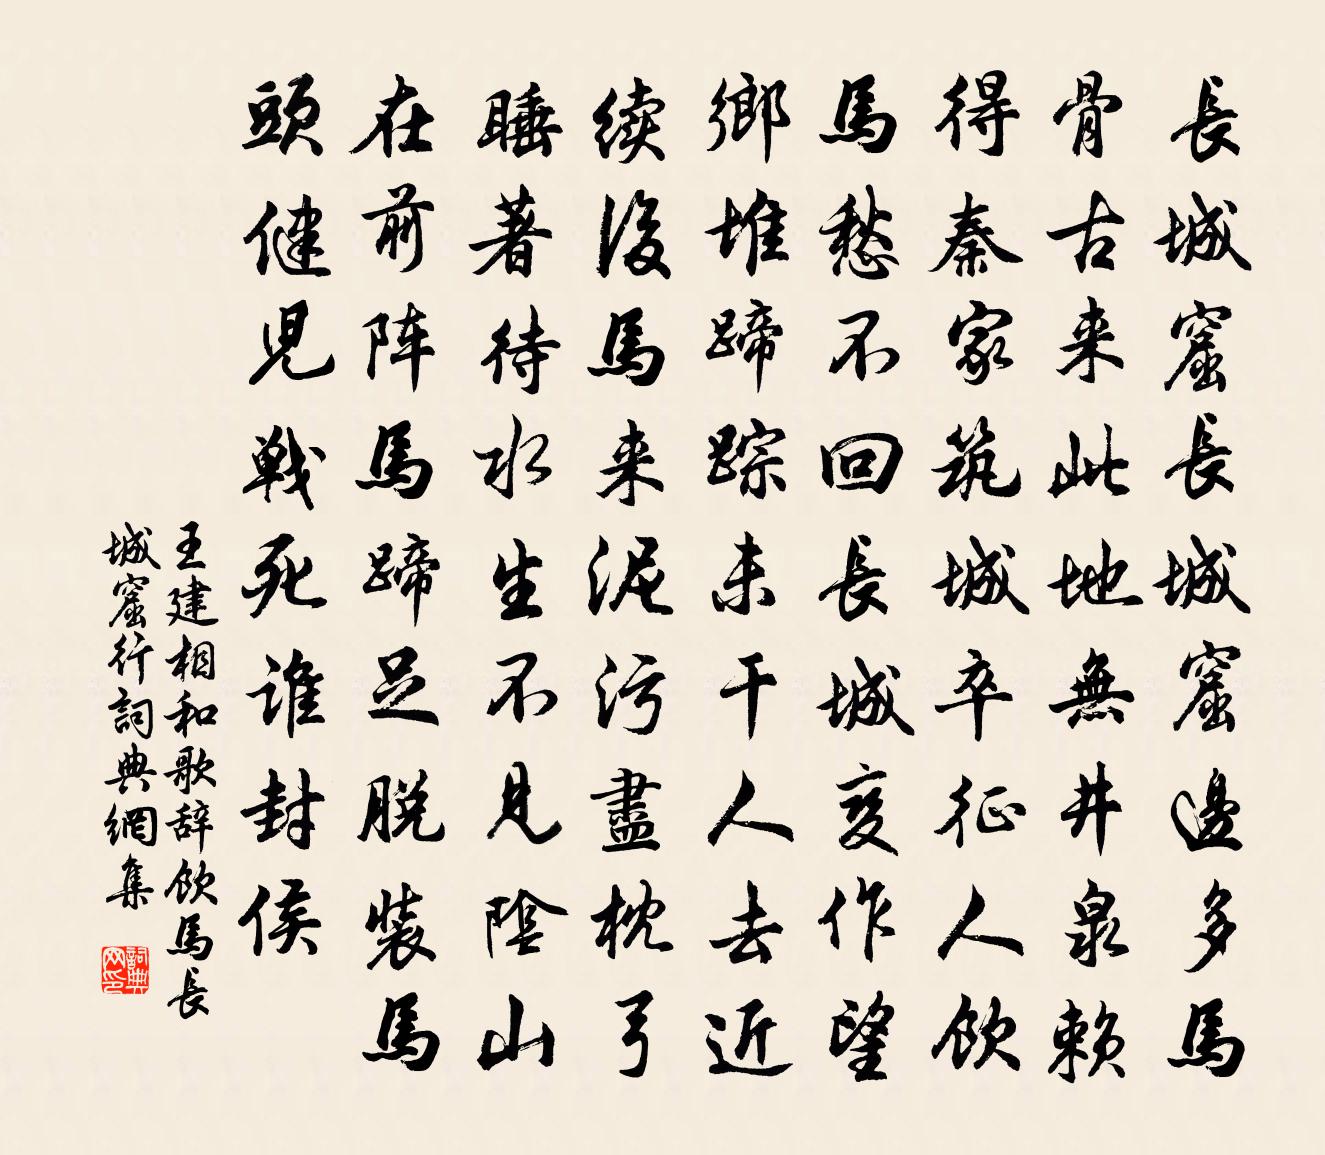 長城窟長城窟邊多馬
骨古来此地無井泉賴
得秦家筑城卒征人飲
馬愁不回長城变作望
鄉堆蹄踪未干人去近
续後馬来泥污盡枕弓
睡著待水生不見陰山
在前阵馬蹄足脱裝馬
頭健児戦死谁封侯
王建相和歌辞飲馬長
城窟行詞典網集
詞典
网印